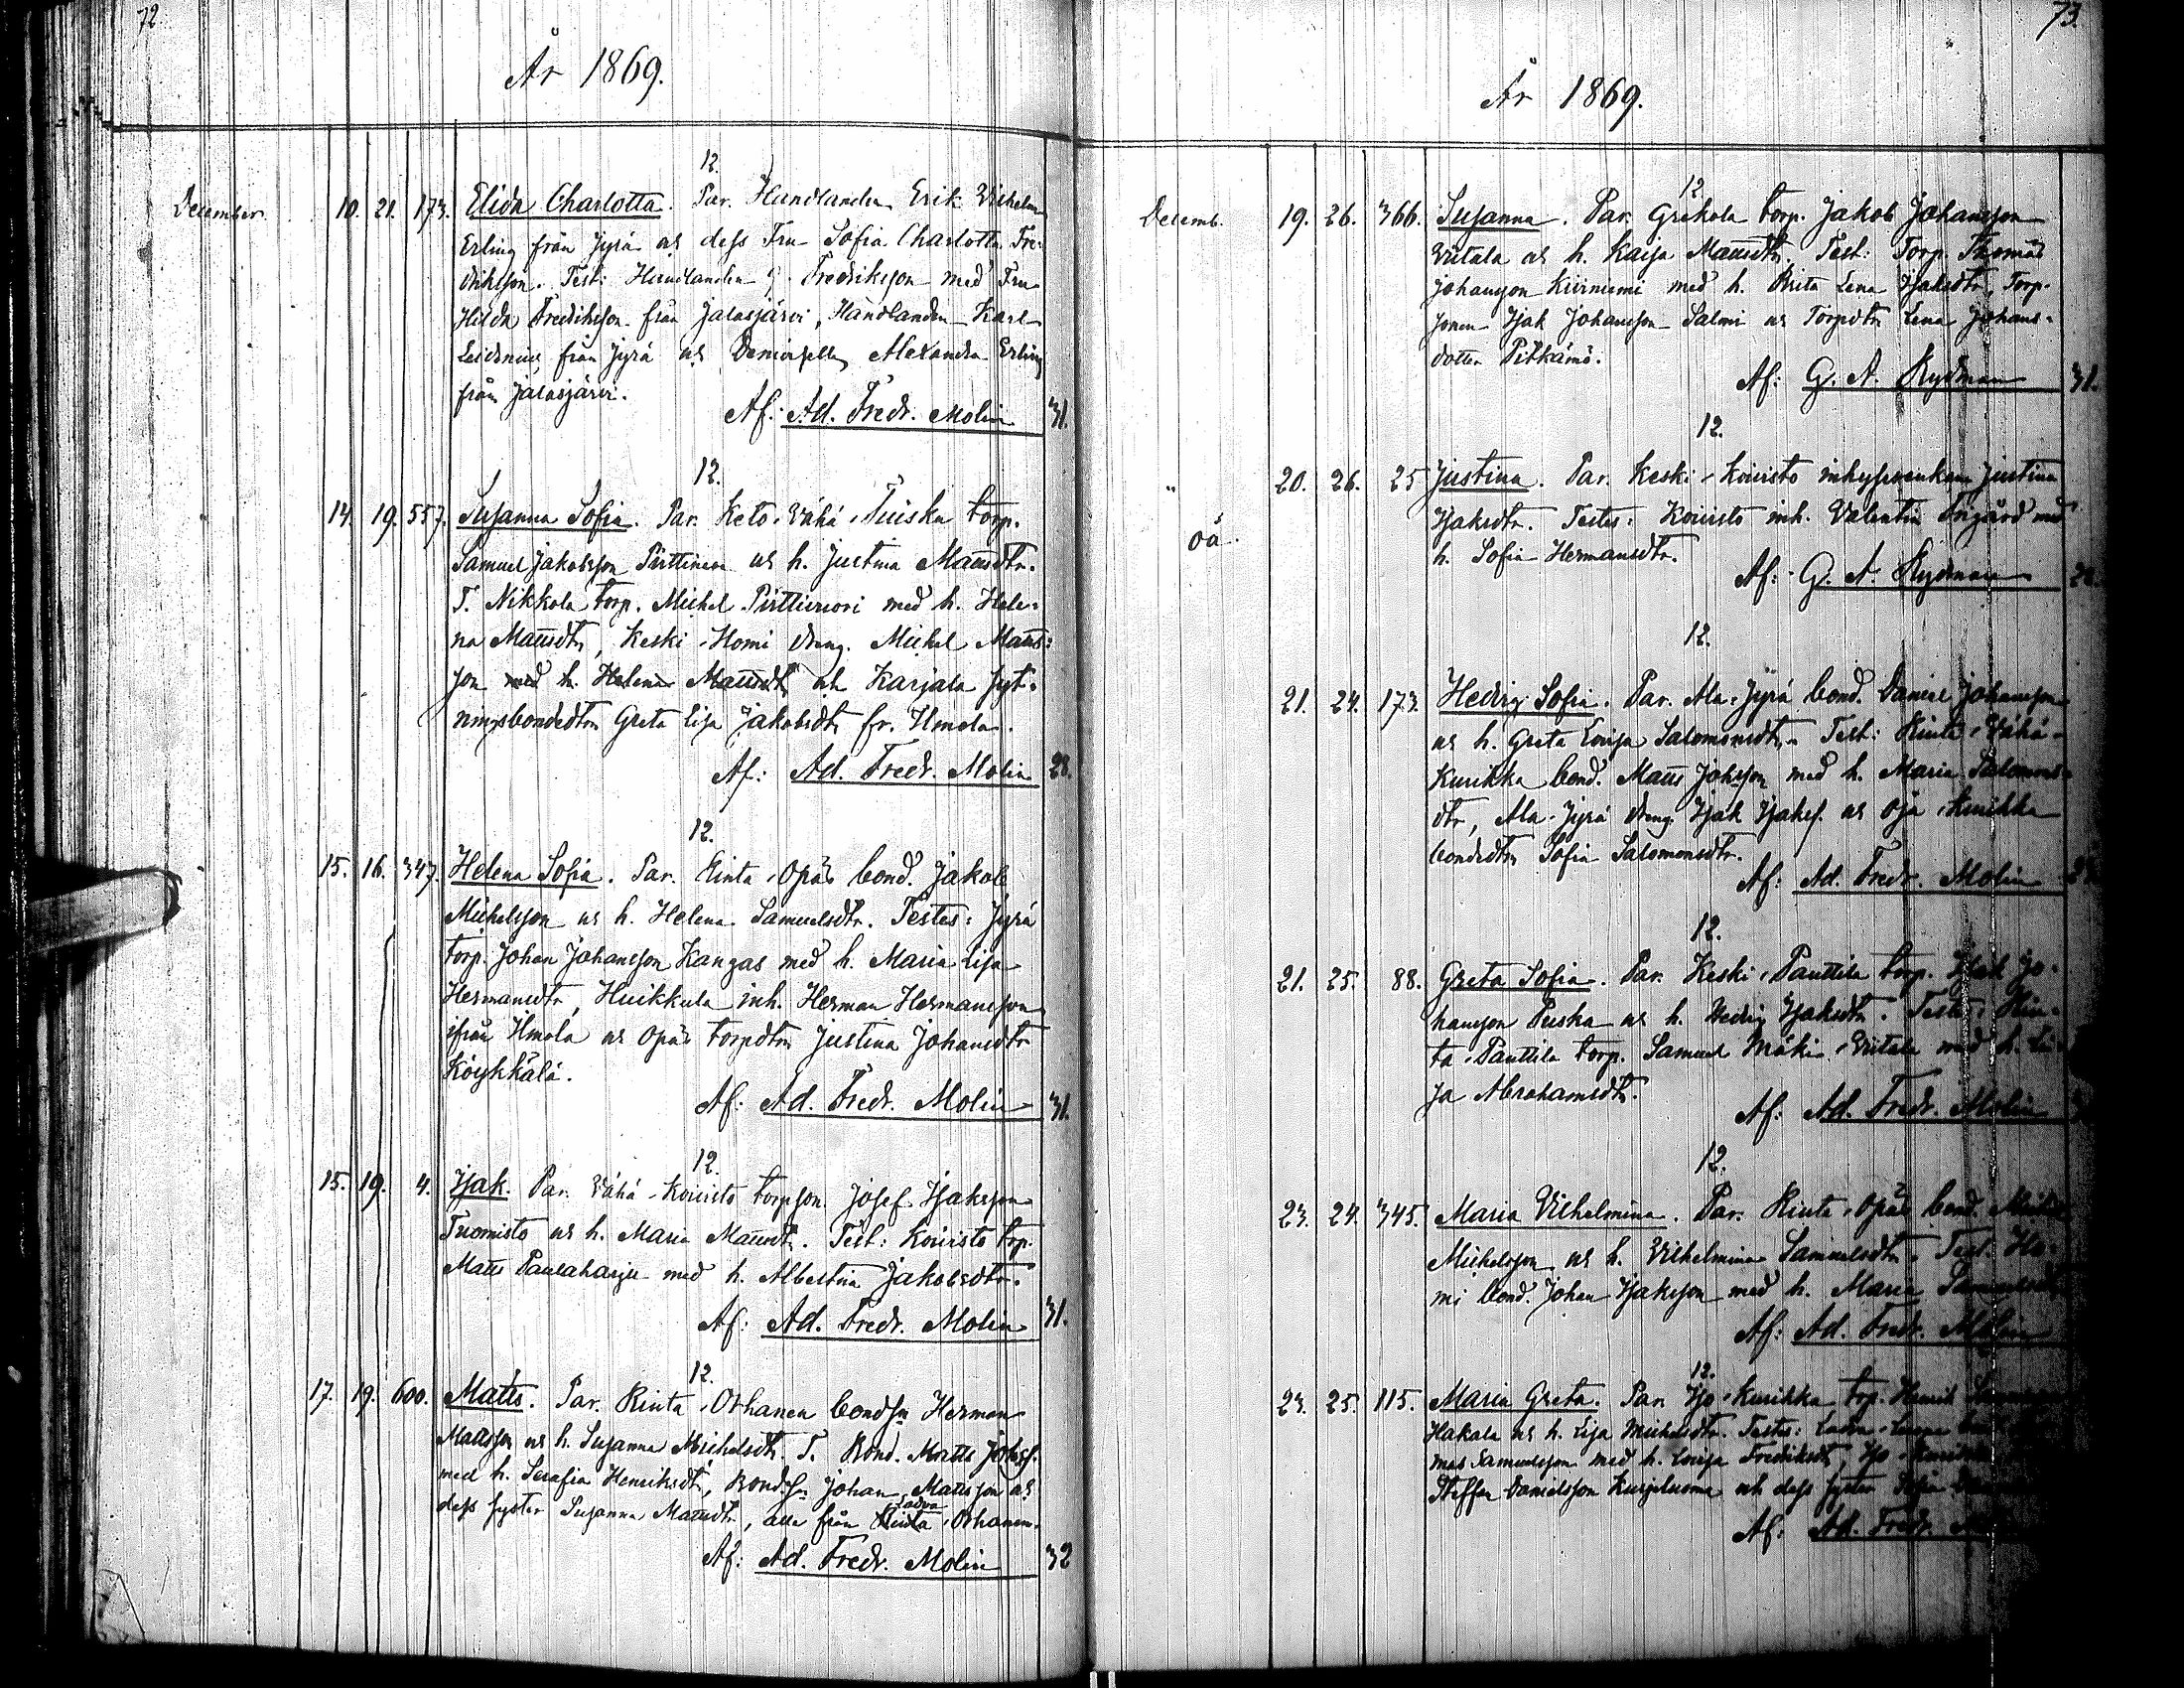 72.
År 1869.
12.
December. 10. 21. 173. Elida Charlotta. Par. Handlanden Erik Wilhelm
Erling från Jyrä och dess Fru Sofia Charlotta Fre-
driksson. Test: Handlanden G. Fredriksson med Fru
Hilda Fredriksson från Jalasjärvi, Handlanden Karl
från Jyrä och Demoiselle Alexandra Erling
från Jalasjärvi.
Af: Ad. Fredr. Molin 31.
12.
14. 19. 557. Susanna Sofia. Par. Keto-Wähä-Tuisku torp.
Samuel Jakobsson Pirttinen och h. Justina Mattsdtr.
T. Nikkola torp. Michel Pirttivuori med h. Hele-
na Mattsdtr, Keski-Homi dreng. Michel Matts-
son med h. Helena Mattsdtr och Karjala syt-
ningsbondedtrn Greta Lisa Jakobsdtr fr. Ilmola.
Af: Ad. Fredr. Molin 28.
12.
15. 16. 347. Helena Sofia. Par. Rinta-Opas bond. Jakob
Michelsson och h. Helena Samuelsdtr. Testes: Jyrä
torp. Johan Johansson Kangas med h. Maria Lisa
Hermansdtr, Huikkula inh. Herman Hermansson
ifrån Ilmola och Opas torpdtrn Justina Johansdtr
Köykkälä.
Af: Ad. Fredr. Molin 31.
12.
15. 19. 4. Isak. Par. Wähä-Koivisto torpson Josef Isaksson
Tuomisto och h. Maria Mattsdtr. Test: Koivisto torp.
Matts Paulaharju med h. Albertina Jakobsdtr.
Af: Ad. Fredr. Molin 31.
12.
17. 19. 600. Matts. Par. Rinta-Orhanen bondsn Herman
Mattsson och h. Susanna Michelsdtr. T. Bond. Matts Johss.
med h. Serafia Henriksdtr, Bondsn Johan Mattsson och
dess syster Susanna Mattsdtr, alla från Rinta Ladva-Orhanen.
Af: Ad. Fredr. Molin 32
73.
År 1869.
12.
Decemb. 19. 26. 366. Susanna. Par. Grekola torp. Jakob Johansson
Viitala och h. Kaisa Mattsdtr. Test: Torp. Thomas
Johansson Kiviniemi med h. Brita Lena Isaksdtr, Torp-
sonen Isak Johansson Salmi och Torpdtrn Lena Johans-
dotter Pitkämö.
Af: G. A. Rydman 31.
12.
" 20. 26. 25 Justina. Par. Keski-Koivisto inhysesenkan Justina
Isaksdtr. Testes: Koivisto inh. Valentin Frigård med
oä. h. Sofia Hermansdtr.
Af: G. A. Rydman
12.
21. 24. 173. Hedvig Sofia. Par. Ala-Jyrä bond. Daniel Johansson
och h. Greta Lovisa Salomonsdtr. Test: Rinta-Wähä-
Kurikka bond. Matts Johsson med h. Maria Salomons-
dtr, Ala-Jyrä dreng Isak Isakss. och Oja-Kurikka
bondedtrn Sofia Salomonsdtr.
Af: Ad. Fredr. Molin
12.
21. 25. 88. Greta Sofia. Par. Keski-Panttila torp. Isak Jo-
hansson Puska och h. Hedvig Isaksdtr. Testes: Rin-
ta-Panttila torp. Samuel Mäki-Viitala med h. Li-
sa Abrahamsdtr.
Af: Ad. Fredr. Molin
12.
23. 24. 345. Maria Vilhelmina. Par. Rinta-Opas bond.
Michelsson och h. Vilhelmina Samuelsdtr. Test. Ho-
mi bond. Johan Isaksson med h. Maria Samuelsdtr
Af: Ad. Fredr. Molin
12.
23. 25. 115. Maria Greta. Par. Iso-Kurikka torp. Henrik
Hakala och h. Lisa Michelsdtr. Testes:
mas Samuelsson med h. Lovisa Fredriksdtr, Iso
Steffan Danielsson och dess syster
Af: Ad. Fredr.